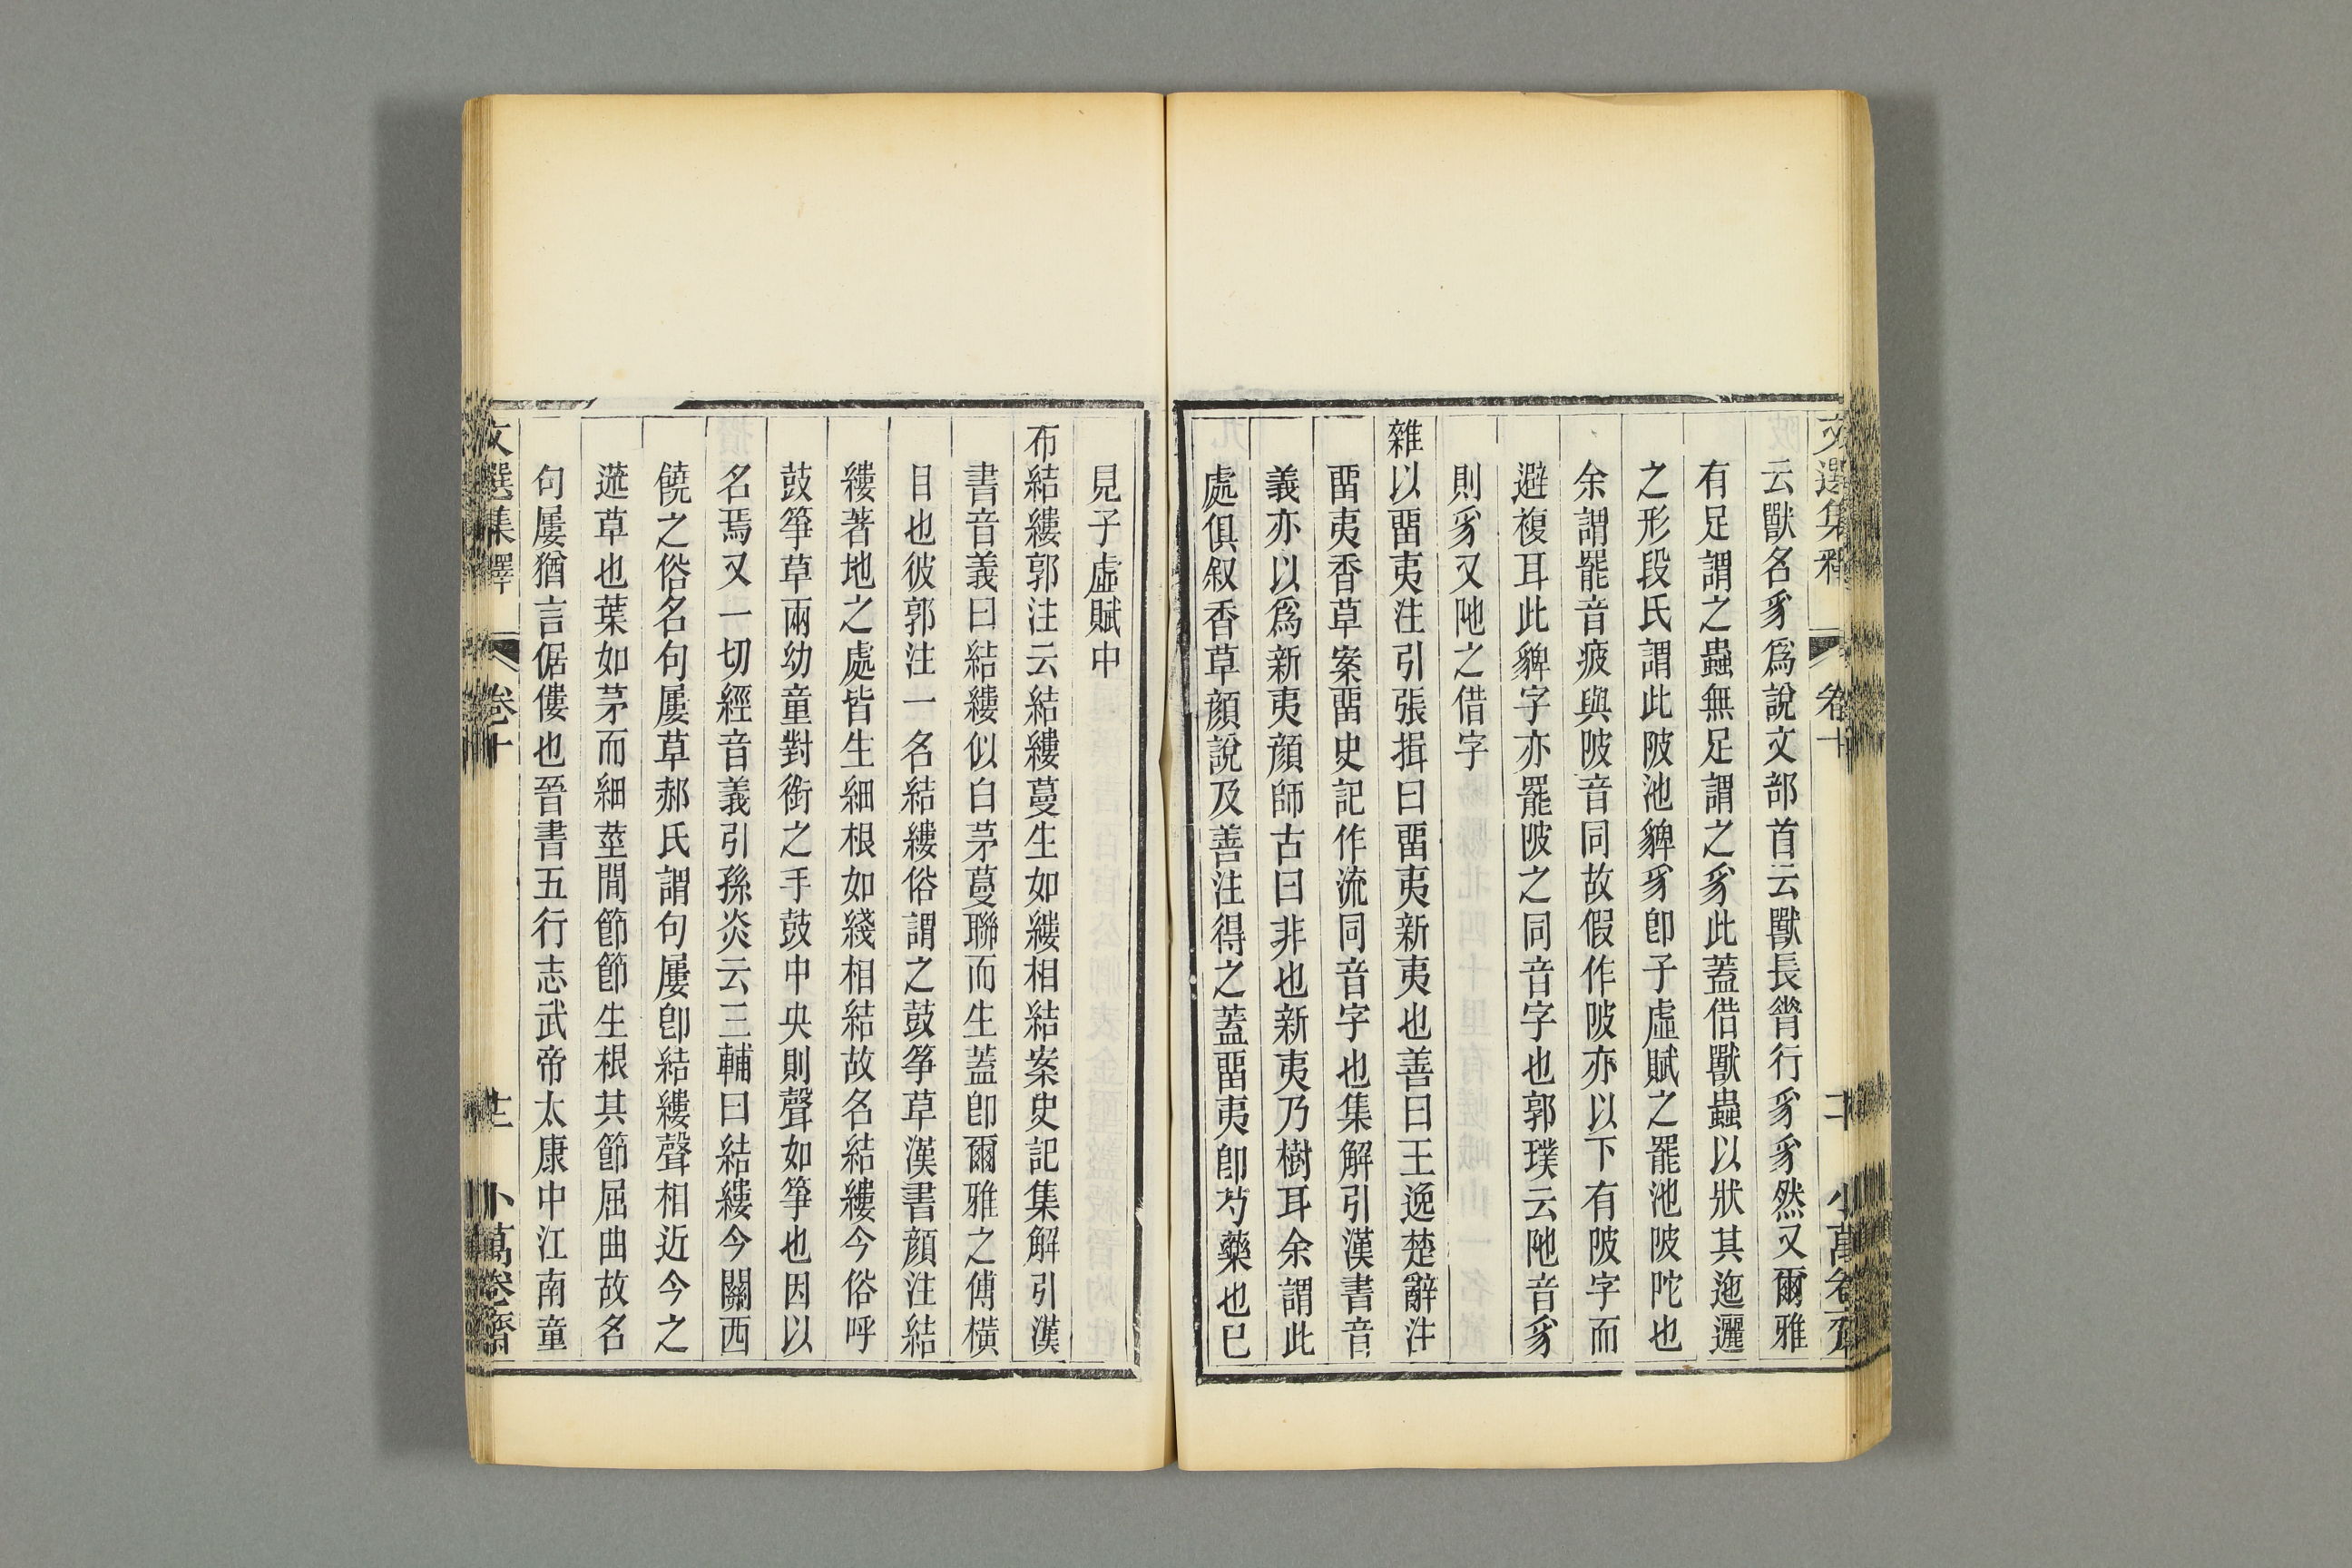 文選集釋 卷十 二十 小萬卷齋
云獸名豸爲說文部首云獸長脊行豸豸然又爾雅
有足謂之蟲無足謂之豸此蓋借獸蟲以狀其迤邐
之形段氏謂此陂池貏豸卽子虛賦之罷池陂陀也
余謂罷音疲與陂音同故假作陂亦以下有陂字而
避複耳此貏字亦罷陂之同音字也郭璞云阤音豸
則豸又阤之借字
雜以畱夷注引張揖曰畱夷新夷也善曰王逸楚辭注
畱夷香草案畱史記作流同音字也集解引漢書音
義亦以爲新夷顏師古曰非也新夷乃樹耳余謂此
處俱叙香草顏說及善注得之蓋畱夷卽芍藥也已
見子虛賦中
布結縷郭注云結縷蔓生如縷相結案史記集解引漢
書音義曰結縷似白茅蔓聯而生蓋卽爾雅之傅橫
目也彼郭注一名結縷俗謂之鼓筝草漢書顏注結
縷著地之處皆生細根如綫相結故名結縷今俗呼
鼓筝草兩幼童對銜之手鼓中央則聲如筝也因以
名焉又一切經音義引孫炎云三輔曰結縷今關西
饒之俗名句屢草郝氏謂句屢卽結縷聲相近今之
遊草也葉如茅而細莖間節節生根其節屈曲故名
句屢猶言倨僂也晉書五行志武帝太康中江南童
文選集釋 卷十 小萬卷齋